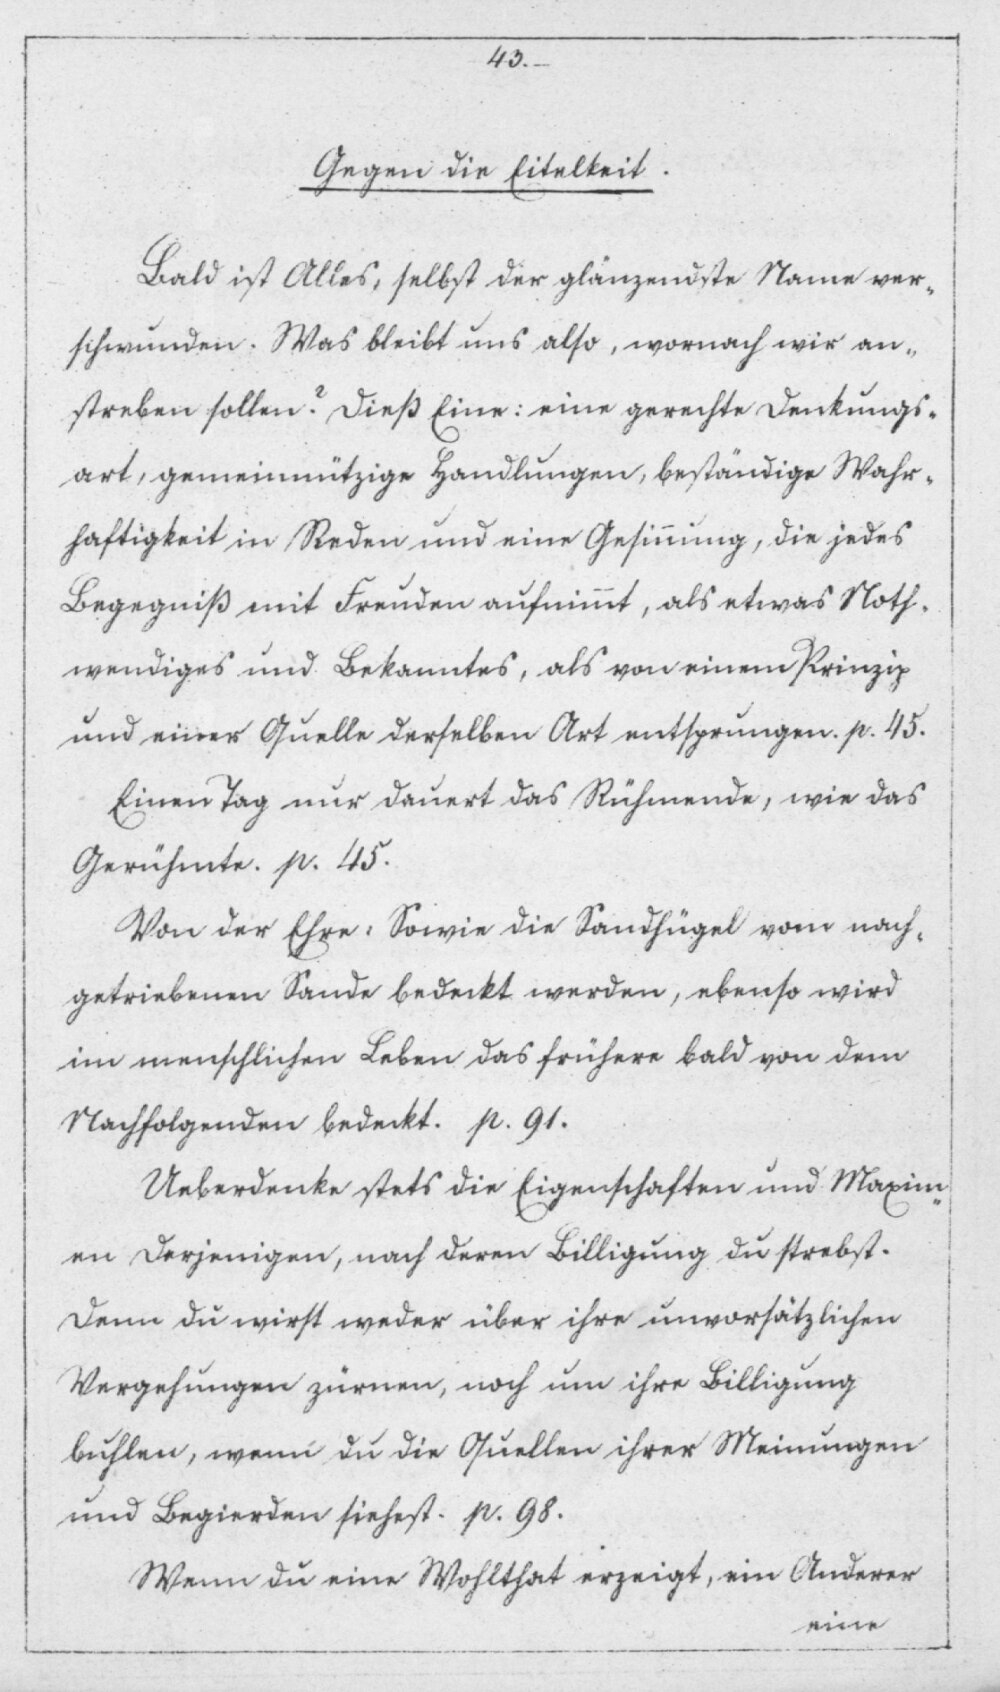 43.–
Gegen die Eitelkeit.
Bald ist Alles, selbst der glänzendste Name ver-
schwunden. Was bleibt uns also, wornach wir an-
streben sollen? Dieß Eine: eine gerechte Denkungs-
art, gemeinnützige Handlungen, beständige Wahr-
haftigkeit in Reden und eine Gesin̄ung, die jedes
Begegniß mit Freuden aufnim̄t, als etwas Noth-
wendiges und Bekanntes, als von einem Prinzip
und einer Quelle derselben Art entsprungen. p. 45.
Einen Tag nur dauert das Rühmende, wie das
Gerühmte. p. 45.
Von der Ehre: Sowie die Sandhügel vom nach-
getriebenen Sande bedeckt werden, ebenso wird
im menschlichen Leben das frühere bald von dem
Nachfolgenden bedeckt. p. 91.
Ueberdenke stets die Eigenschaften und Maxim-
en Derjenigen, nach deren Billigung du strebst.
Denn du wirst weder über ihre unvorsätzlichen
Vergehungen zürnen, noch um ihre Billigung
buhlen, wenn du die Quellen ihrer Meinungen
und Begierden siehest. p. 98.
Wenn du eine Wohlthat erzeigt, ein Anderer
eine